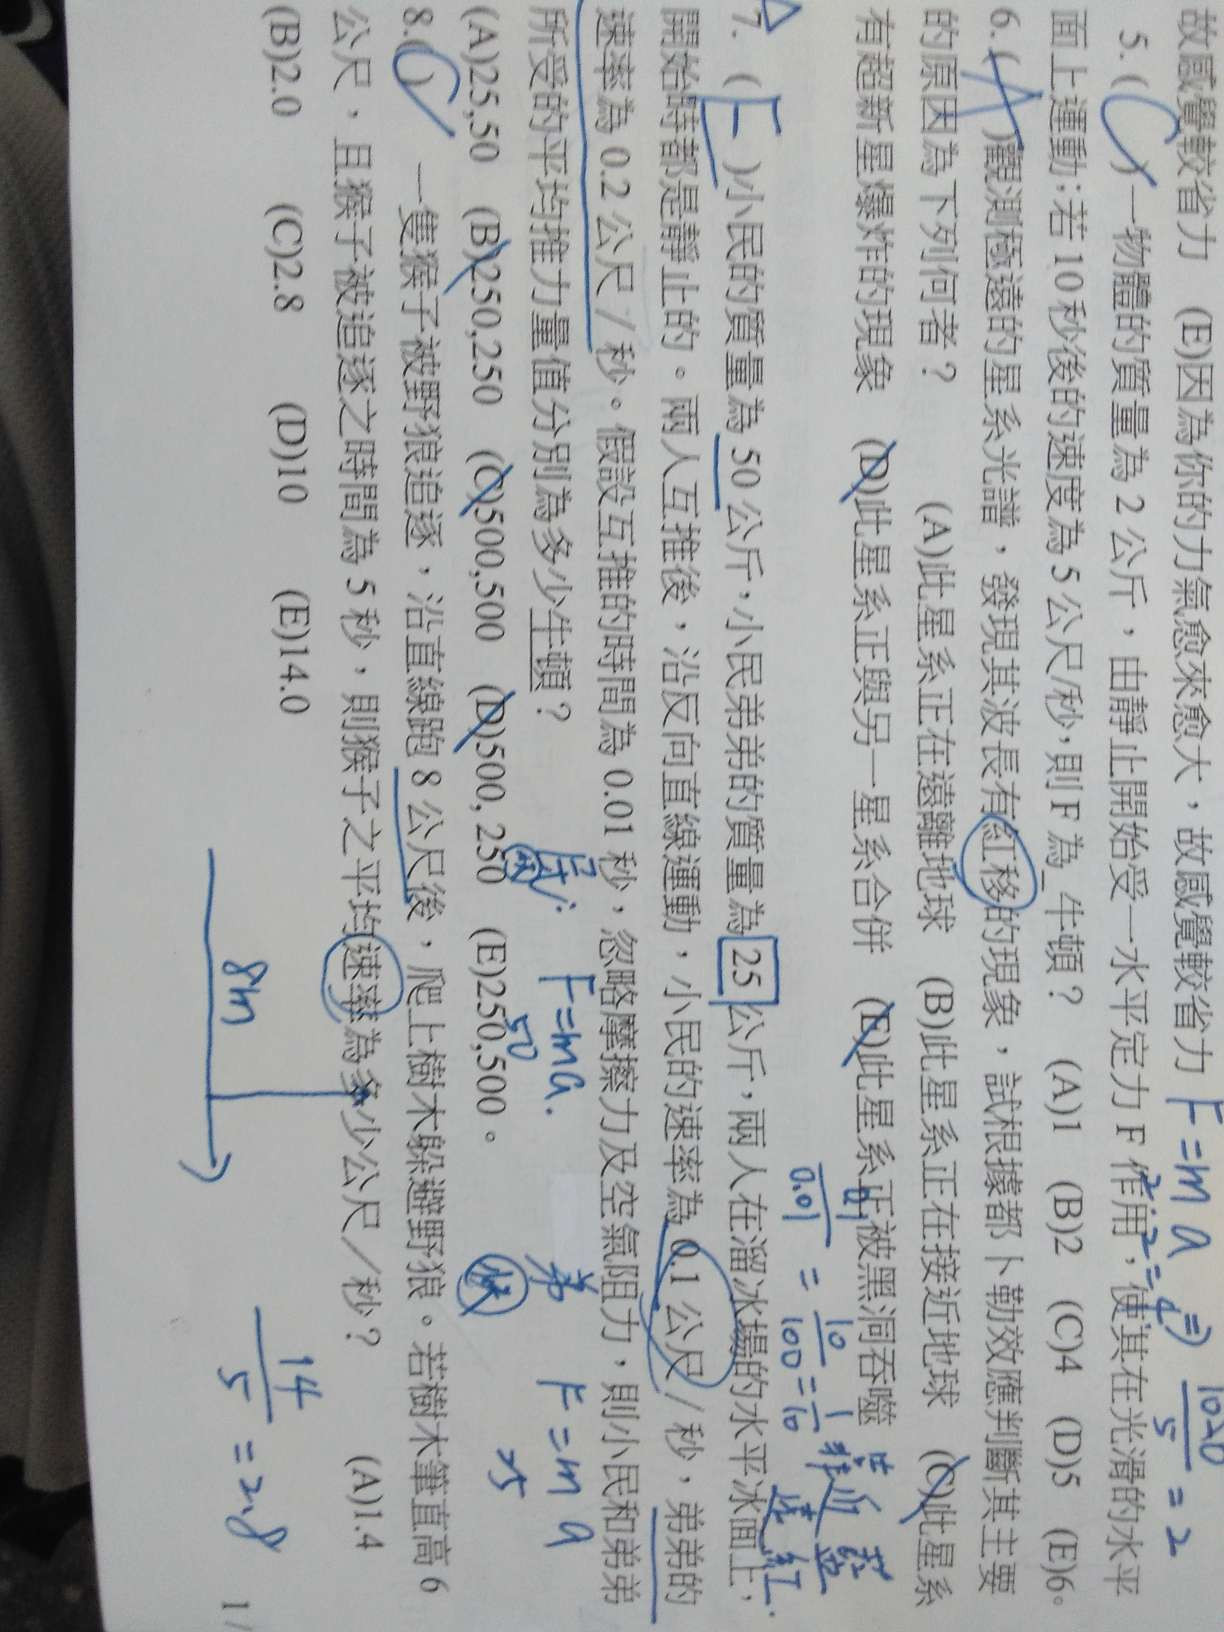 故感覺較省力 (E)因為你的力氣愈來愈大，故感覺較省力
F=ma
5.( C )一物體的質量為 2 公斤，由靜止開始受一水平定力 F 作用，使其在光滑的水平
面上運動；若 10 秒後的速度為 5 公尺/秒，則 F 為_牛頓？ (A)1 (B)2 (C)4 (D)5 (E)6。
6.( A )觀測極遠的星系光譜，發現其波長有紅移的現象，試根據都卜勒效應判斷其主要
的原因為下列何者？ (A)此星系正在遠離地球 (B)此星系正在接近地球 (C)此星系
有超新星爆炸的現象 (D)此星系正與另一星系合併 (E)此星系正被黑洞吞噬
0.01 = 10/100 = 1/10
7. ( E )小民的質量為 50 公斤，小民弟弟的質量為 25 公斤，兩人在溜冰場的水平冰面上，
開始時都是靜止的。兩人互推後，沿反向直線運動，小民的速率為 0.1 公尺/秒，弟弟的
速率為 0.2 公尺/秒。假設互推的時間為 0.01 秒，忽略摩擦力及空氣阻力，則小民和弟弟
所受的平均推力量值分別為多少牛頓？
F=ma. 弟 F=ma
50 25
(A)25,50 (B)250,250 (C)500,500 (D)500, 250 (E)250,500。
8.( C ) 一隻猴子被野狼追逐，沿直線跑 8 公尺後，爬上樹木躲避野狼。若樹木筆直高 6
公尺，且猴子被追逐之時間為 5 秒，則猴子之平均速率為多少公尺/秒？ (A)1.4
(B)2.0 (C)2.8 (D)10 (E)14.0
8m
14/5 = 2.8
1/